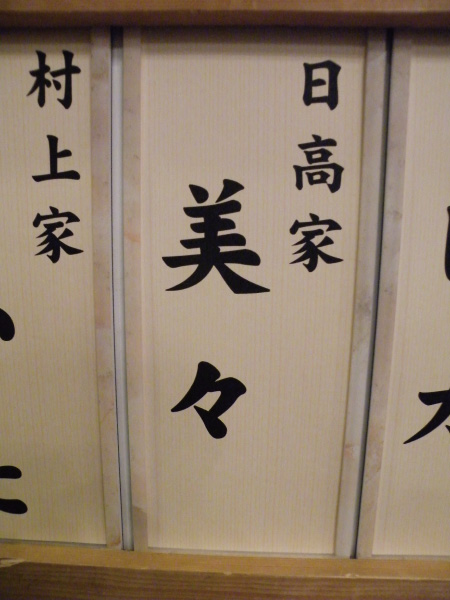 日高家
美々
村上家